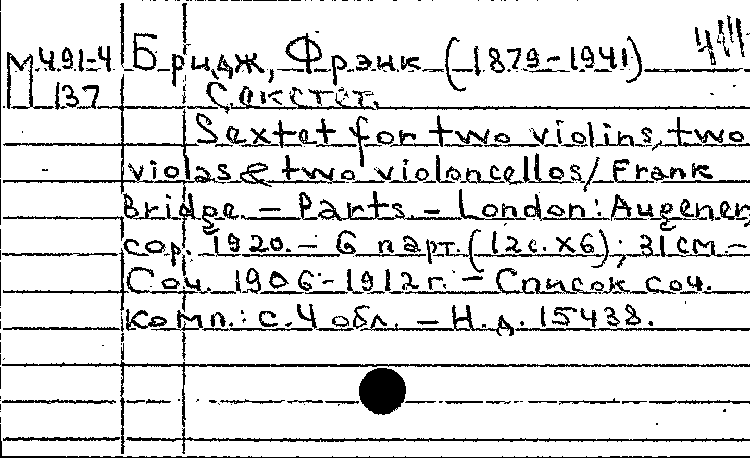 М 491-4 Бридж, Фрэнк (1879-1941)
137 Секстет.
Sextet for two violins, two
violas & two violoncellos/Frank
Bridge. — Parts. — London: Augener,
cop. 1920. — 6 парт. (12с. x6); 31 см —
Соч. 1906-1912 г. — Список соч.
комп.: с. 4 обл. — Н. д. 15438.